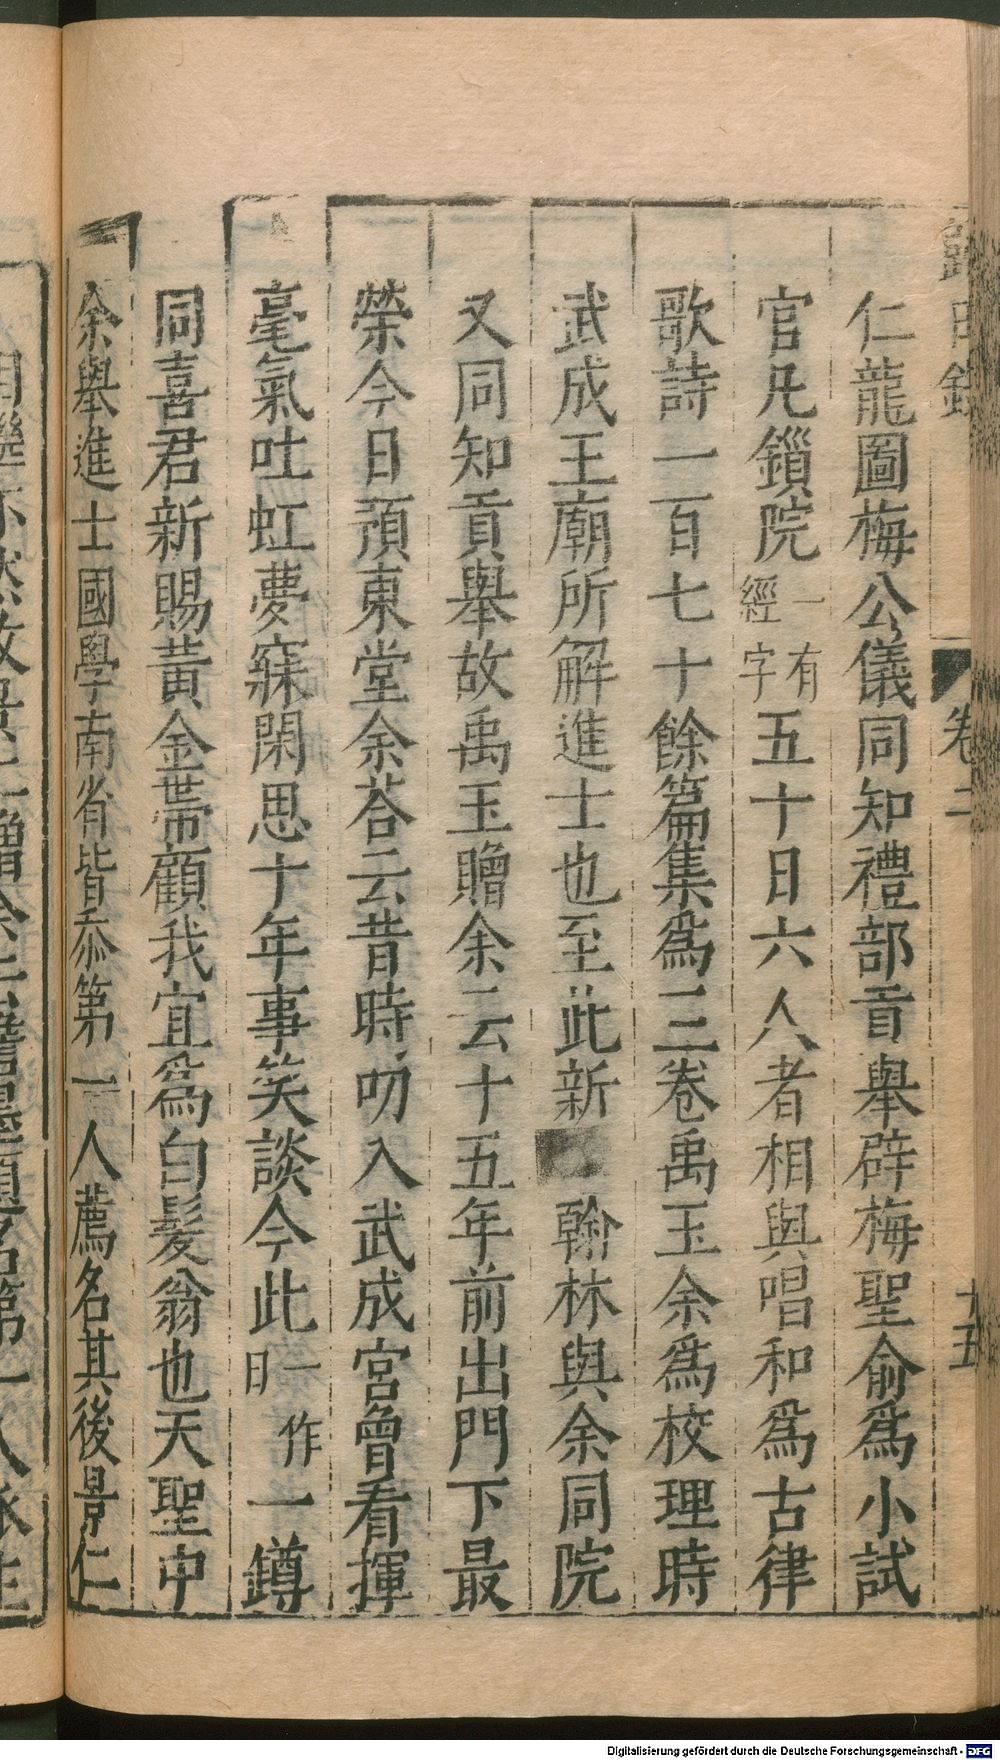 歸田錄 卷二 十五
仁龍圖梅公儀同知禮部貢舉辟梅聖俞爲小試
官凡鎖院一有經字五十日六人者相與唱和爲古律
歌詩一百七十餘篇集爲三卷禹玉余爲校理時
武成王廟所解進士也至此新 翰林與余同院
又同知貢舉故禹玉贈余云十五年前出門下最
榮今日預東堂余荅云昔時叨入武成宮曾看揮
毫氣吐虹夢寐閑思十年事笑談今此一作日一罇
同喜君新賜黃金帶顧我宜爲白髮翁也天聖中
余舉進士國學南省皆忝第一人薦名其後景仁
Digitalisierung gefördert durch die Deutsche Forschungsgemeinschaft - DFG